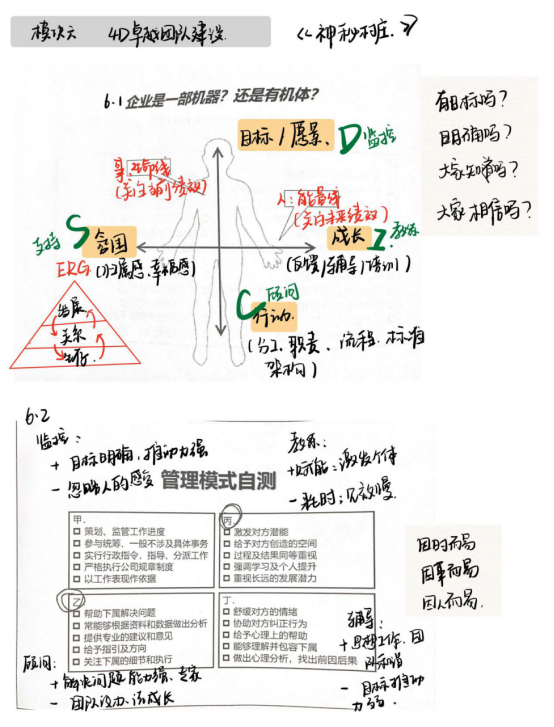 模块六 4D卓越团队建设 《神秘村庄》
6.1 企业是一部机器？还是有机体？
目标/愿景、 D 监控
有目标吗？
明确吗？
大家知道吗？
大家相信吗？
事：生命线
(关乎当前绩效)
人：能量线
(关乎未来绩效)
支持 S
(归属感、幸福感)
成长 I 教练
(反馈/辅导/培训)
ERG
生存
C 顾问
行动.
(分工、职责、流程、标准
架构)
6.2
监控：
+ 目标明确，推动力强
- 忽略人的感受
管理模式自测
教练：
+赋能：激发个体
- 耗时；见效慢.
甲.
策划、监管工作进度
参与统筹、一般不涉及具体事务
实行行政指令，指导、分派工作
严格执行公司规章制度
以工作表现作依据
丙.
激发对方潜能
给予对方创造的空间
过程及结果同等重视
强调学习及个人提升
重视长远的发展潜力
因时而易
因事而易
因人而易.
乙.
帮助下属解决问题
常能够根据资料和数据做出分析
提供专业的建议和意见
给予指引及方向
关注下属的细节和执行
丁.
舒缓对方的情绪
协助对方纠正行为
给予心理上的帮助
能够理解并包容下属
做出心理分析，找出前因后果
顾问：
+ 解决问题能力强、专家
- 团队没力、没成长
辅导：
+ 思想工作、团
队和谐
- 目标推动
力弱.